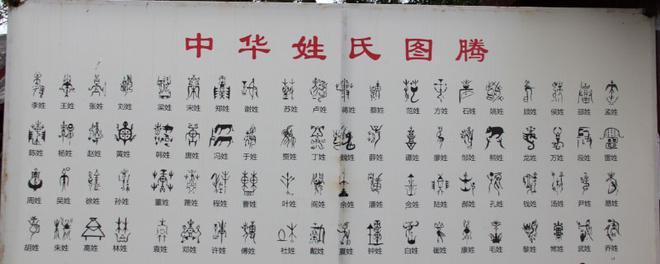 中华姓氏图腾
李姓 王姓 张姓 刘姓 梁姓 宋姓 郑姓 谢姓 苏姓 卢姓 蒋姓 蔡姓 范姓 方姓 石姓 姚姓 顾姓 侯姓 邵姓 孟姓
陈姓 杨姓 赵姓 黄姓 韩姓 唐姓 冯姓 于姓 贾姓 丁姓 魏姓 薛姓 谭姓 廖姓 邹姓 熊姓 龙姓 万姓 段姓 雷姓
周姓 吴姓 徐姓 孙姓 董姓 萧姓 程姓 曹姓 叶姓 阎姓 余姓 潘姓 金姓 陆姓 郝姓 孔姓 钱姓 汤姓 尹姓
胡姓 朱姓 高姓 林姓 袁姓 邓姓 许姓 傅姓 杜姓 戴姓 夏姓 钟姓 白姓 崔姓 康姓 毛姓 黎姓 常姓 武姓 乔姓